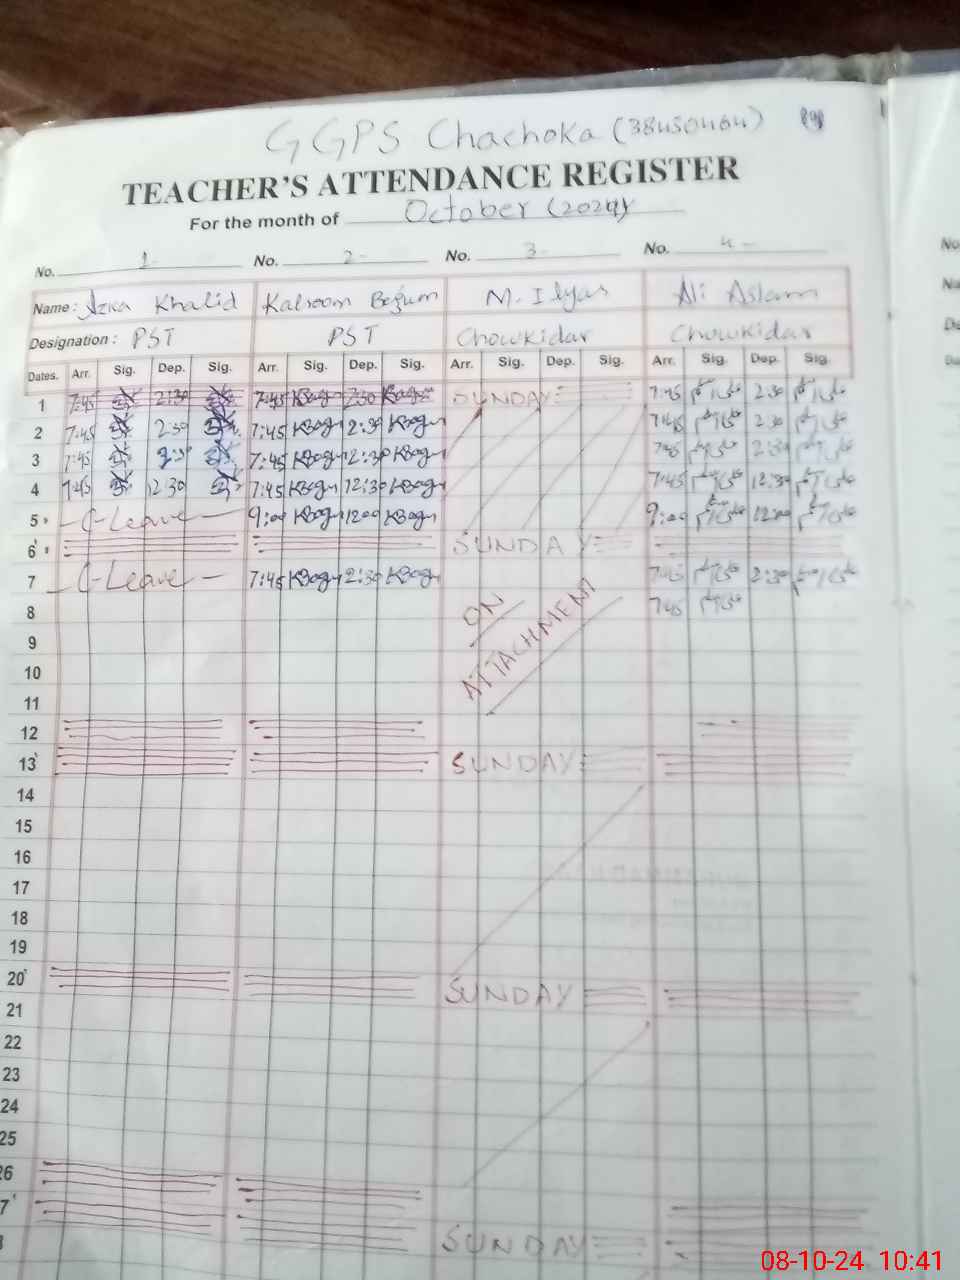 GGPS Chachoka (38450464)
TEACHER'S ATTENDANCE REGISTER
For the month of October (2024)
No. 1- No. 2- No. 3- No. 4-
Name: Azka Khalid Kalsoom Begum M. Ilyas Ali Aslam
Designation: PST PST Chowkidar Chowkidar
Dates. Arr. Sig. Dep. Sig. Arr. Sig. Dep. Sig. Arr. Sig. Dep. Sig. Arr. Sig. Dep. Sig.
1 7:45 2:30 7:45 KBegum 2:30 KBegum SUNDAY 7:45 2:30
2 7:45 2:30 7:45 KBegum 2:30 KBegum 7:45 2:30
3 7:45 2:30 7:45 KBegum 12:30 KBegum 7:45 2:30
4 7:45 12:30 7:45 KBegum 12:30 KBegum 7:45 12:30
5 C-Leave 9:00 KBegum 1200 KBegum 9:00 12:00
6 SUNDAY
7 C-Leave 7:45 KBegum 2:30 KBegum 7:45 2:30
8 ON 7:45
9 ATTACHMENT
10
11
12
13 SUNDAY
14
15
16
17
18
19
20 SUNDAY
21
22
23
24
25
26
7
SUNDAY
08-10-24 10:41